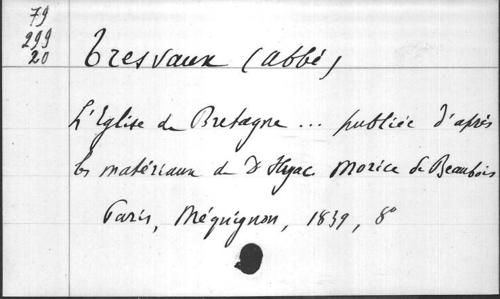 79
299
20
Tresvaux (abbé)
L'Eglise de Bretagne ... publiée d'après
les matériaux de D Hyac. Morice de Beaubois
Paris, Méquignon, 1839, 8°